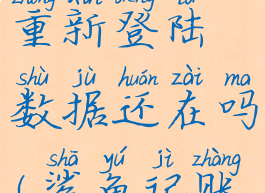 重新登陆
shù jù huán zài ma
数据还在吗
shā yú jì zhàng
(鲨鱼记账